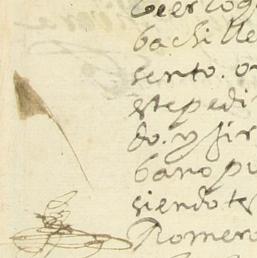 bachille
sento. o
este pedi
do. y fir
bano pu
siendo te
Romero